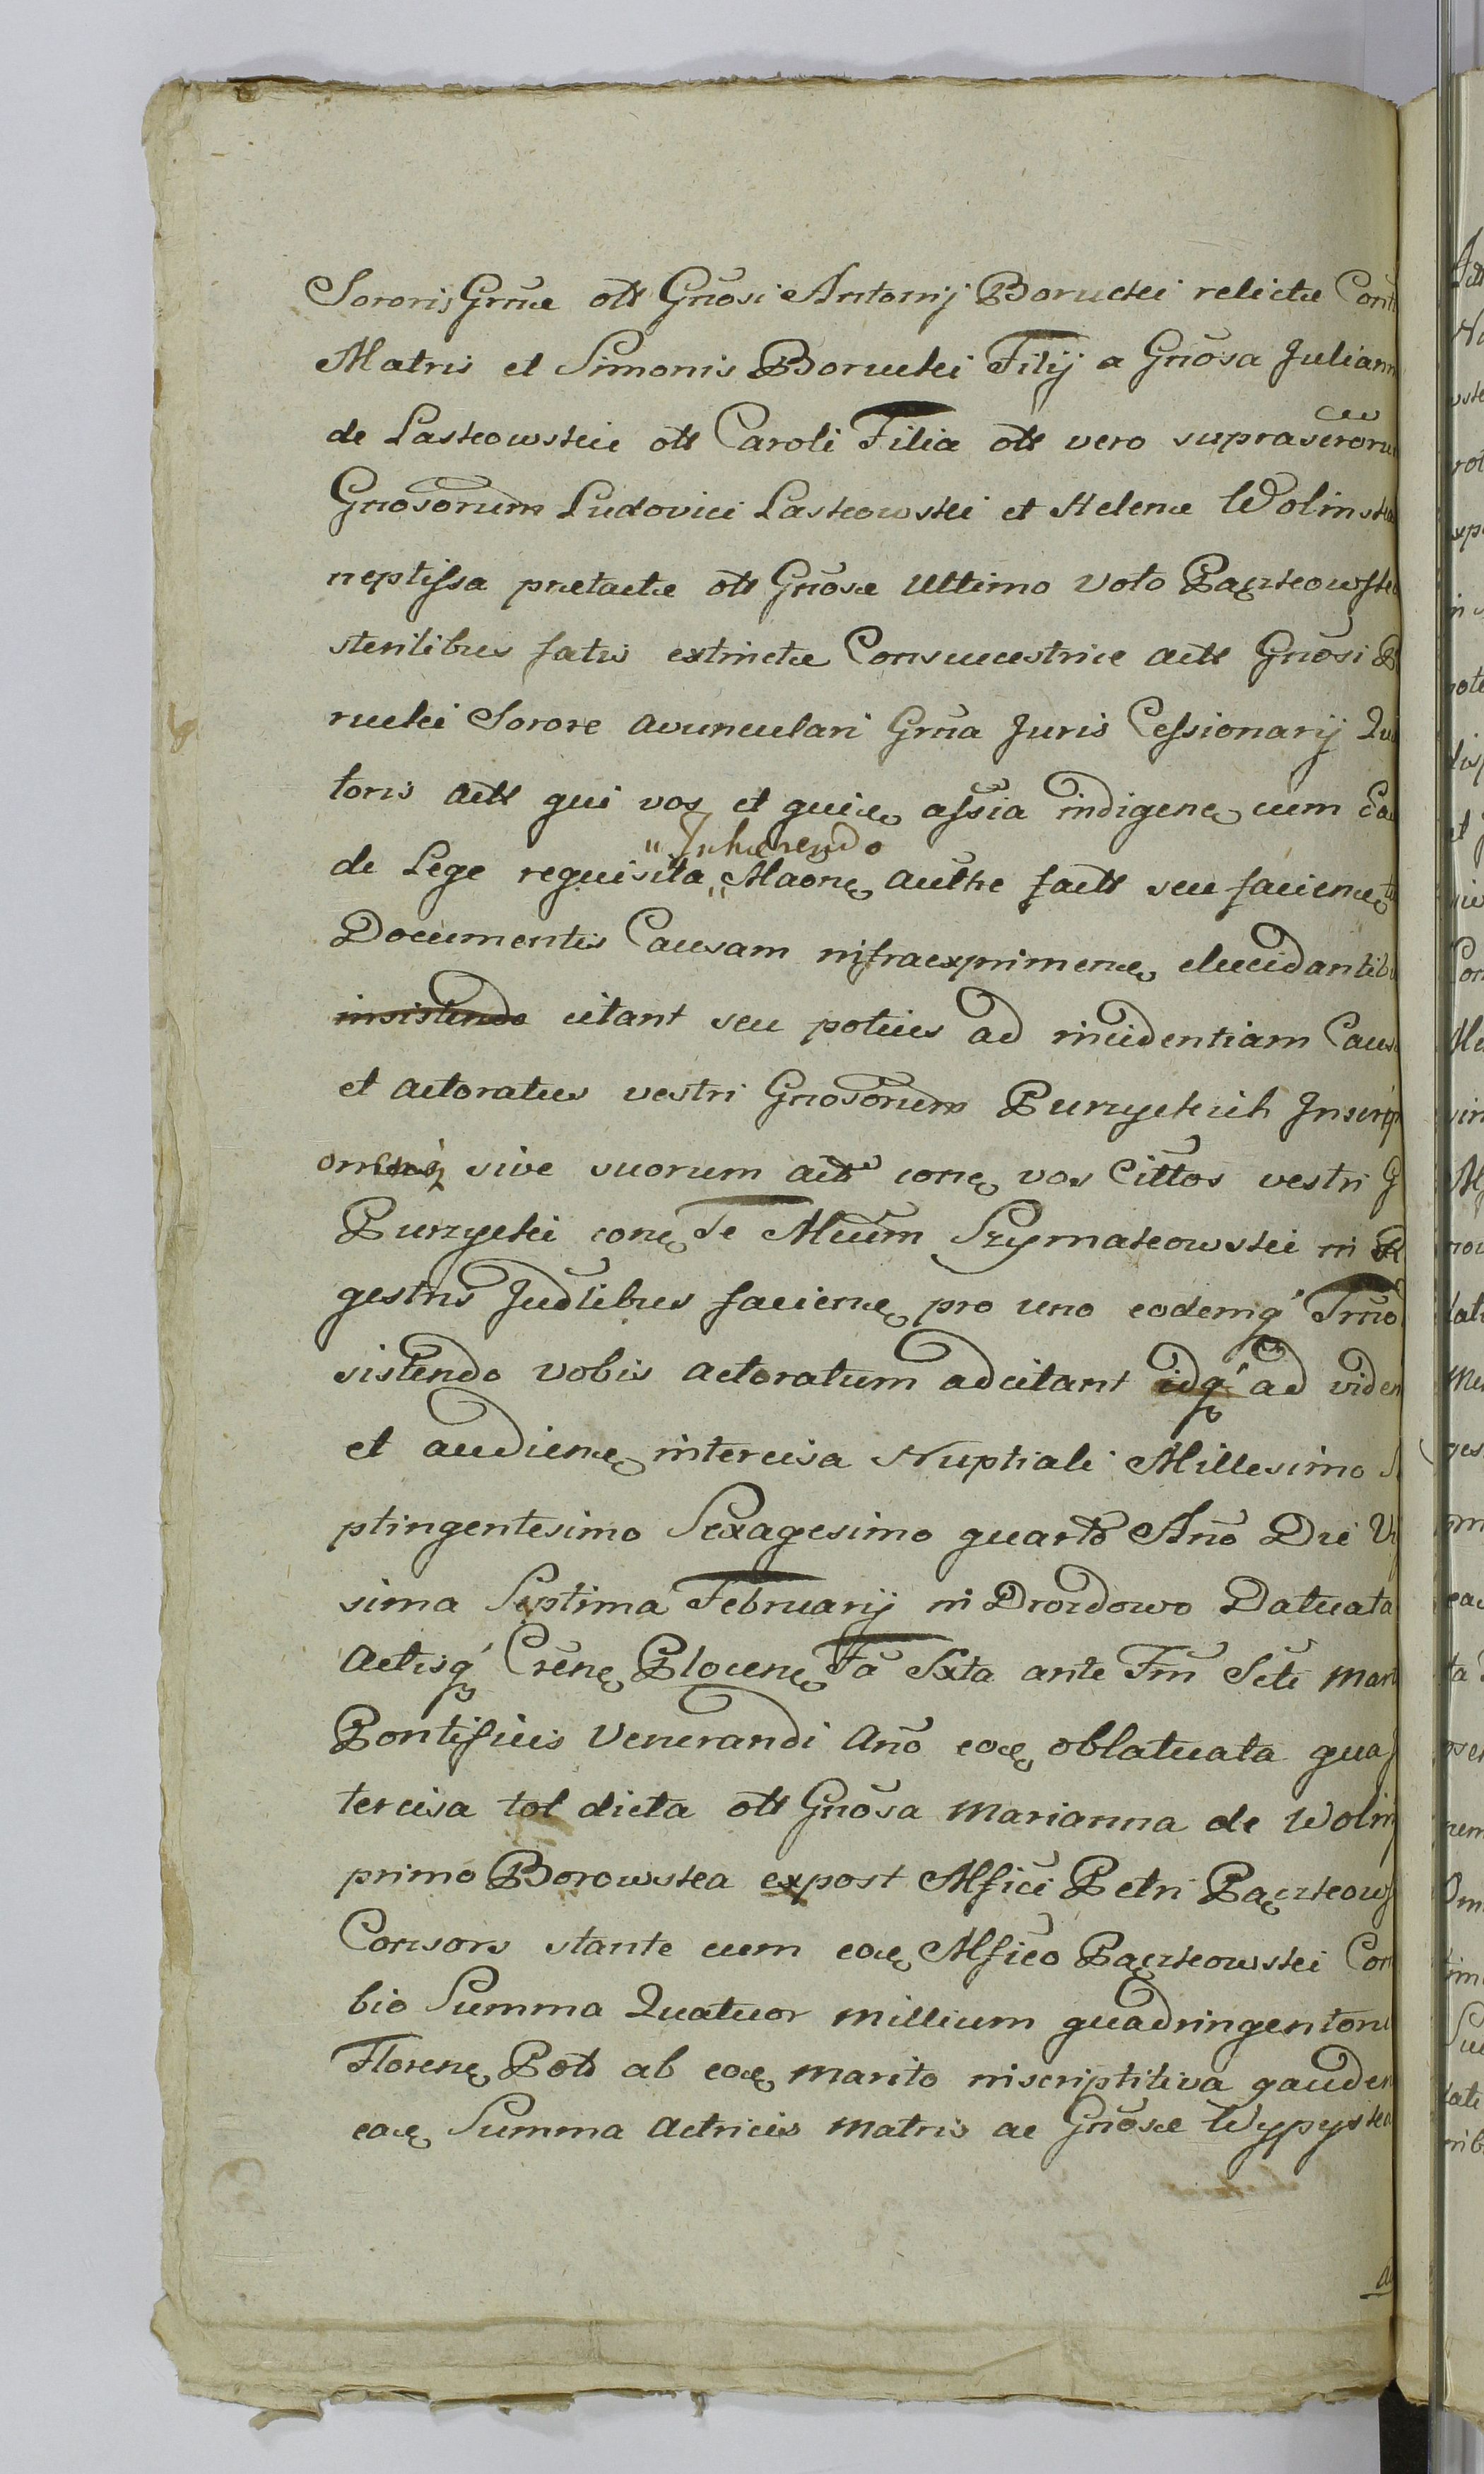 Sororis Grnæ olt Gñosi Antonij Boruckei relictæ Con
Matris et Simonis Boruckei Filij a Gñosa Juliann
de Laskowskie olt Caroli Filia olt vero suprascr̃oru
Gñosorum Ludovici Laskowskei et Helenæ Wolinska
neptissa prætactæ olt Gñosæ ultimo voto Pączkowska
sterilibus fatis extinctæ Consuccestrice actt Gñosi B
ruckei Sorore avunculari Grña Juris Cessionarij Qui
toris actt qui vos et quiæ assia indigenę cum Ea
de Lege requisita „Maonę authe factt seu faciendę
"Inhærendo
Documentis Causam infraexprimenę elucidantibu
insistendo citant seu potius ad incidentiam Caus
et actoratus vestri Gñosorum Purzyckich Inscrip
sive suorum actt conę vos Cittos vestri G
Purzyckei conę Te Alium Szymakowskei in R
gestris Judlibus facienę pro uno eodemq́ Tr̃mo
sistendo vobis actoratum adcitant idq́ ad viden
et audienę intercisa Nuptiali Millesimo S
ptingentesimo Sexagesimo quarto Año Die Vi
sima Septima Februarij in Drozdowo Datuata
Actisq́ Cr̃enę Plocenę F̃a Sxta ante Fm̃ Scti Mar
Pontificis Venerandi año eoę oblatuata qua
tercisa tol dicta olt Gñosa Marianna de Wolin
primo Borowska expost Mfici Petri Pączkows
Consors stante cum eoę Mfico Pączkowskei Con
bio Summa Quatuor millium quadringentoru
Florenę Pol ab eoę marito inscriptitiva gauden
eaę Summa actricis matris ac Gñosæ Wypyska